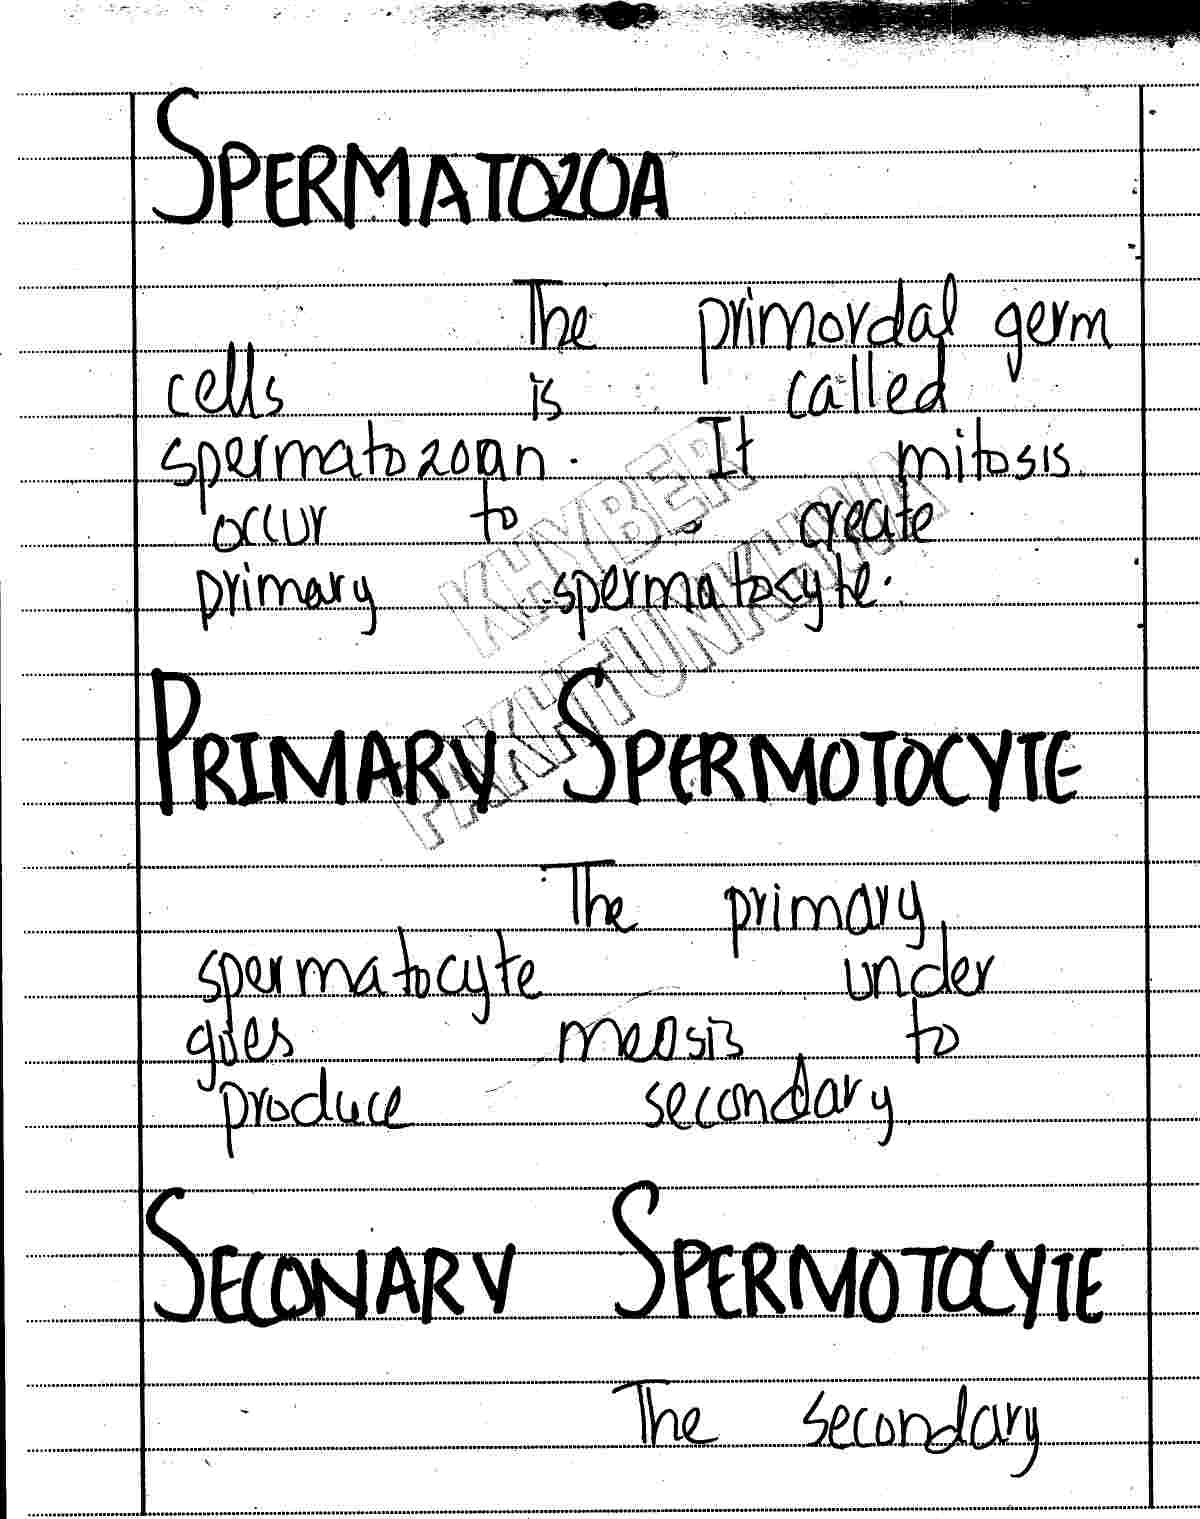 SPERMATOZOA
The primordal germ
cells is called
spermatozoan. It mitosis
occur to create
primary spermatocyte.
KHYBER
PAKHTUNKHWA
PRIMARY SPERMOTOCYTE
The primary
spermatocyte under
goes meosis to
produce secondary
SECONARY SPERMOTOCYTE
The secondary